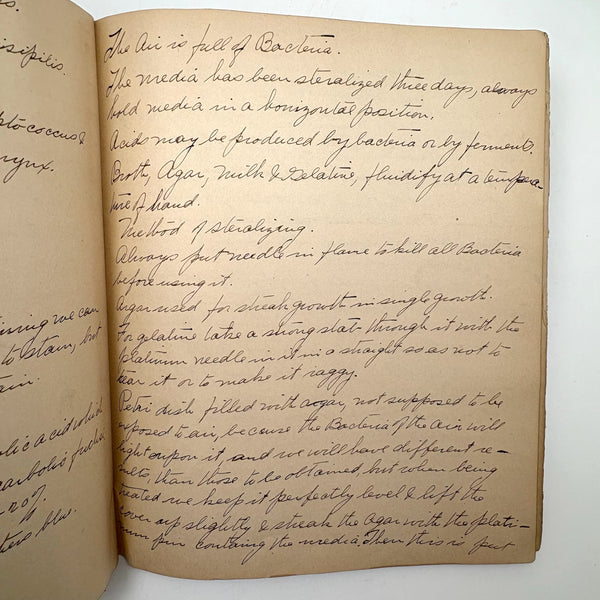 isipilis.
ptococcus &
arynx.
ining we can
to stain, but
ain.
olic acid which
carbolic fuchin
-20%.
The Air is full of Bacteria.
The media has been steralized three days, always
hold media in a horizontal position.
Acids may be produced by bacteria or by ferment.
Broth, Agar, Milk & Gelatine, fluidify at a tempera-
ture of hand.
Method of steralizing.
Always put needle in flame to kill all Bacteria
before using it.
Argar used for streak growth in single growth.
For gelatine take a strong stab through it with the
platinum needle in it in a straight so as not to
tear it or to make it raggy.
Petri dish filled with agar, not supposed to be
exposed to air, because the Bacteria of the Air will
light upon it, and we will have different re-
sults, than those to be obtained, but when being
treated we keep it perfectly level & lift the
cover up slightly & streak the Agar with the plati-
num pin containg the media. Then this is put